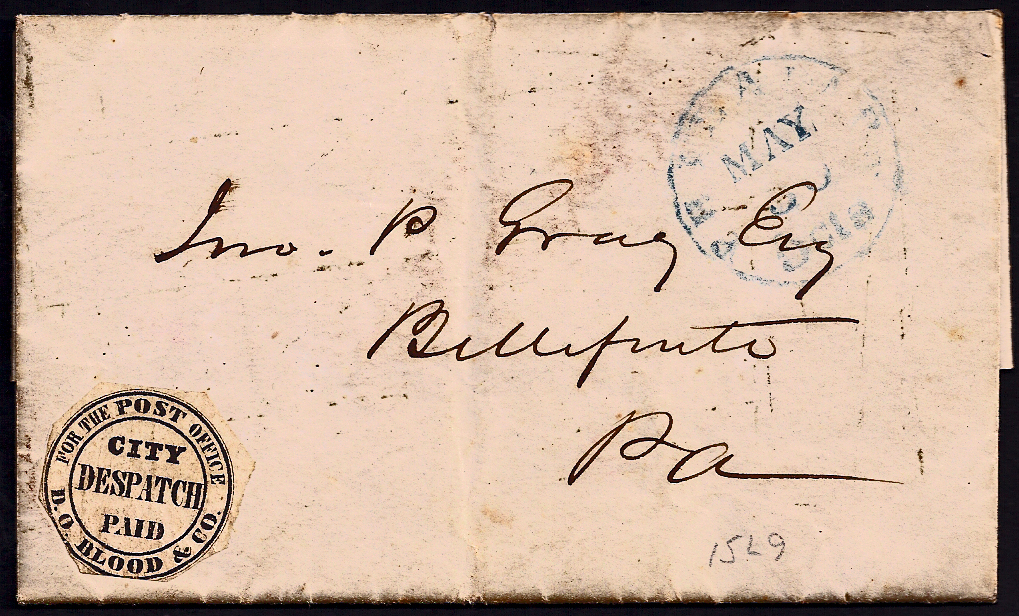 MAY
5 Cts
Jno. P Gray Esq
Bellefonte
Pa
FOR THE POST OFFICE
CITY
DESPATCH
PAID
D.O. BLOOD & CO.
15L9